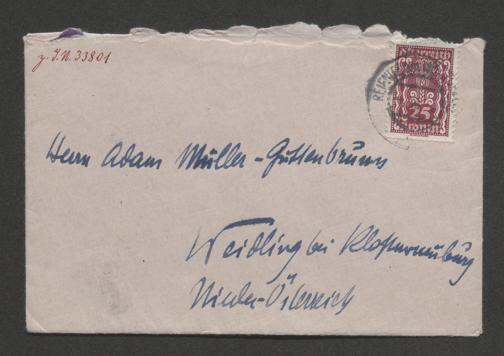 z. I.N. 33801
25
Herrn Adam Müller-Guttenbrunn
Weidling bei Klosterneuburg
Nieder-Österreich